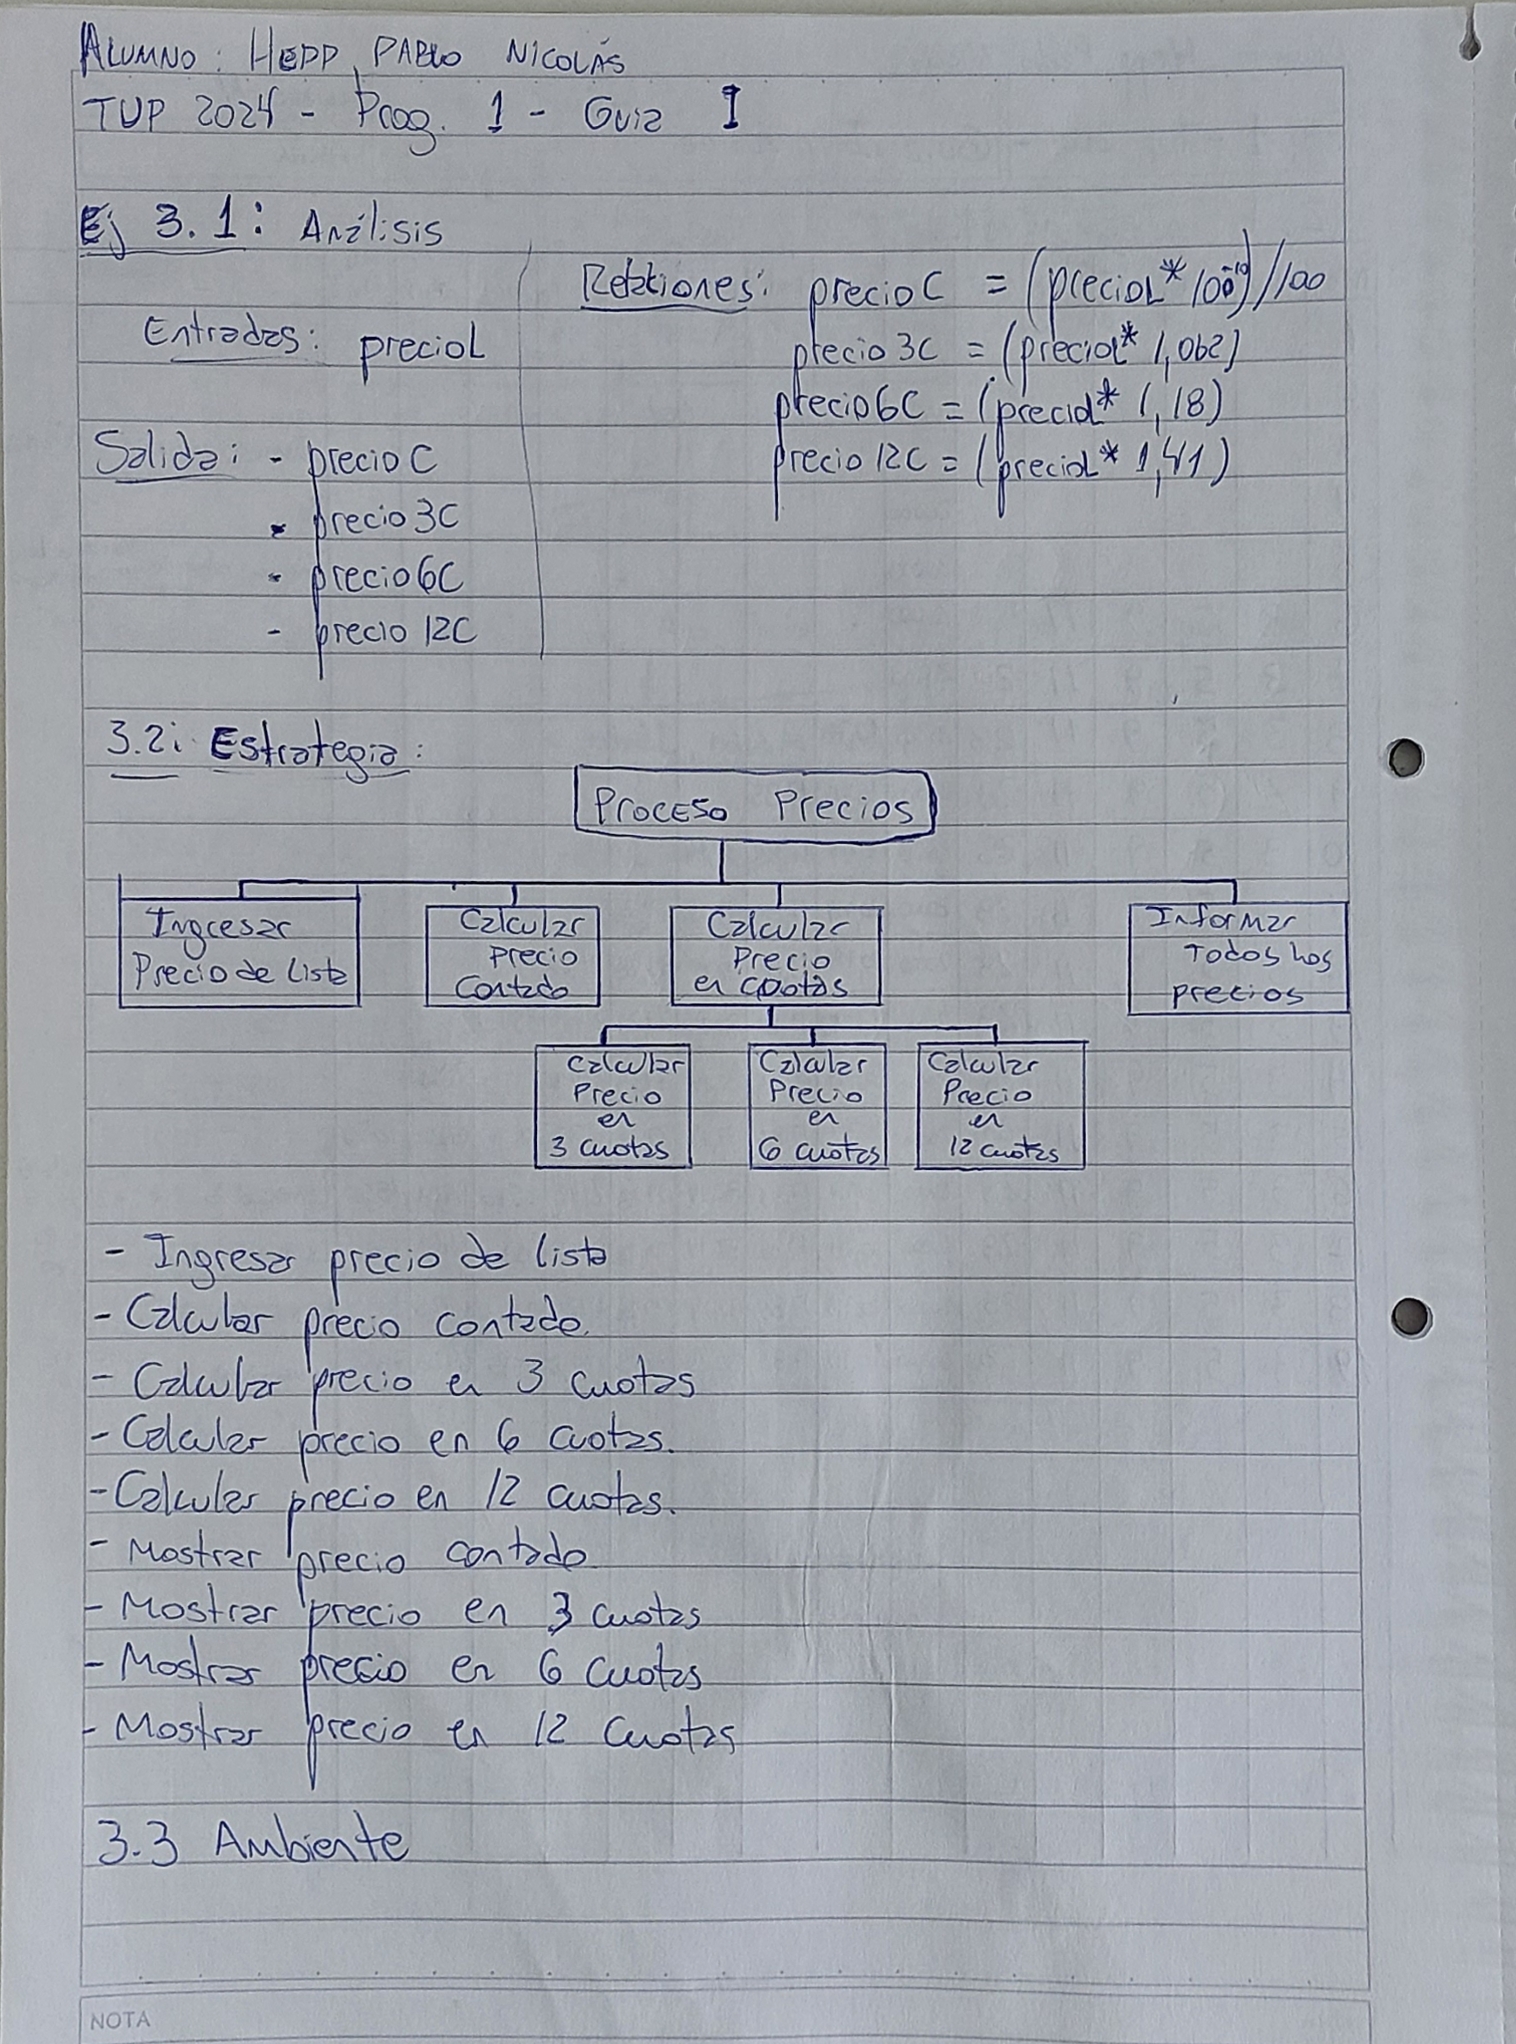 ALUMNO: HEPP, PABLO NICOLÁS
TUP 2024 - Prog. 1 - Guia I
Ej 3.1: Análisis
Entradas: precioL
Salida: - precioC
- precio3C
- precio6C
- precio 12C
Relaciones: precioC = (precioL * 100-10)/100
precio 3C = (precioL * 1,062)
precio6C = (precioL * 1,18)
precio 12C = (precioL * 1,41)
3.2: Estrategia:
Proceso Precios
Ingresar
Precio de Lista
Calcular
Precio
Contado
Calcular
Precio
en cuotas
Informar
Todos Los
precios
Calcular
Precio
en
3 cuotas
Calcular
Precio
en
6 cuotas
Calcular
Precio
en
12 cuotas
- Ingresar precio de lista
- Calcular precio contado.
- Calcular precio en 3 cuotas
- Calcular precio en 6 cuotas.
- Calcular precio en 12 cuotas.
- Mostrar precio contado
- Mostrar precio en 3 cuotas
- Mostrar precio en 6 cuotas
- Mostrar precio en 12 cuotas
3.3 Ambiente
NOTA